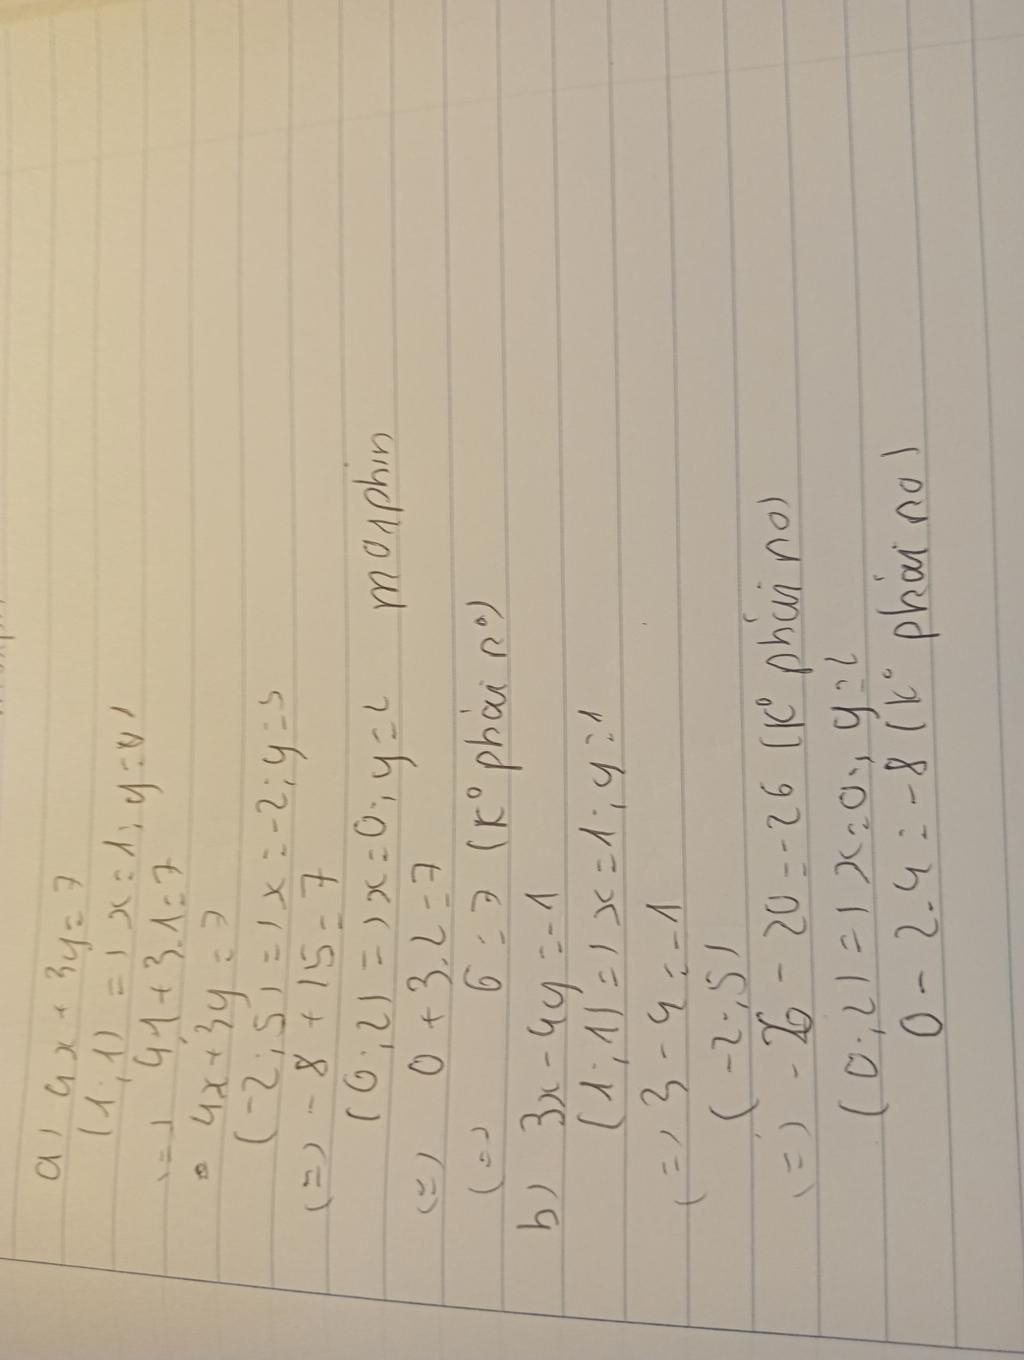 a) 4x + 3y = 7
(1; 1) => x = 1; y = 1
<=> 4.1 + 3.1 = 7
4x + 3y = 7
(-2; 5) => x = -2; y = 5
<=> -8 + 15 = 7
(0; 2) => x = 0; y = 2 morphin
<=> 0 + 3.2 = 7
<=> 6 = 7 (K° phải n°)
b) 3x - 4y = -1
(1; 1) => x = 1; y = 1
<=> 3 - 4 = -1
(-2; 5)
<=> - 6 - 20 = -26 (K° phải no)
(0; 2) => x = 0; y = 2
0 - 2.4 = -8 (K° phải no)